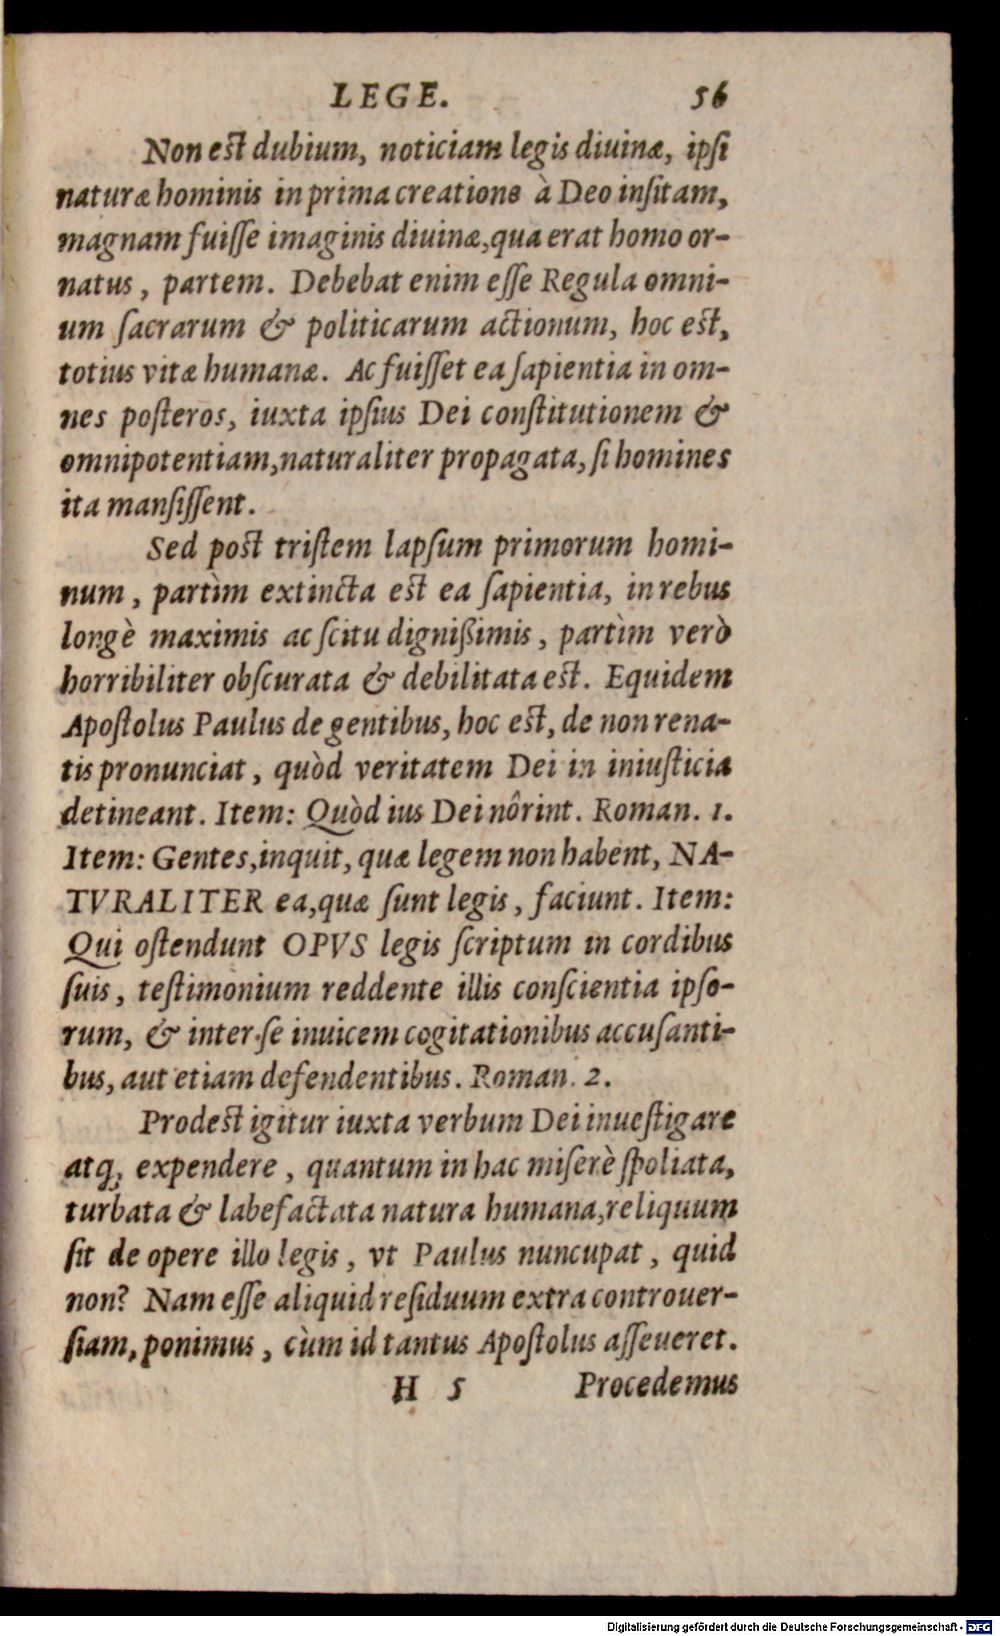 LEGE. 56
Non est dubium, noticiam legis diuinæ, ipsi
naturæ hominis in prima creatione à Deo insitam,
magnam fuisse imaginis diuinæ, qua erat homo or-
natus, partem. Debebat enim esse Regula omni-
um sacrarum & politicarum actionum, hoc est,
totius vitæ humanæ. Ac fuisset ea sapientia in om-
nes posteros, iuxta ipsius Dei constitutionem &
omnipotentiam, naturaliter propagata, si homines
ita mansissent.
Sed post tristem lapsum primorum homi-
num, partìm extincta est ea sapientia, in rebus
longè maximis ac scitu dignißimis, partìm verò
horribiliter obscurata & debilitata est. Equidem
Apostolus Paulus de gentibus, hoc est, de non rena-
tis pronunciat, quòd veritatem Dei in iniusticia
detineant. Item: Quòd ius Dei nôrint. Roman. 1.
Item: Gentes, inquit, quæ legem non habent, NA-
TVRALITER ea, quæ sunt legis, faciunt. Item:
Qui ostendunt OPVS legis scriptum in cordibus
suis, testimonium reddente illis conscientia ipso-
rum, & inter se inuicem cogitationibus accusanti-
bus, aut etiam defendentibus. Roman. 2.
Prodest igitur iuxta verbum Dei inuestigare
atq; expendere, quantum in hac miserè spoliata,
turbata & labefactata natura humana, reliquum
sit de opere illo legis, vt Paulus nuncupat, quid
non? Nam esse aliquid residuum extra controuer-
siam, ponimus, cùm id tantus Apostolus asseueret.
H 5 Procedemus
Digitalisierung gefördert durch die Deutsche Forschungsgemeinschaft - DFG